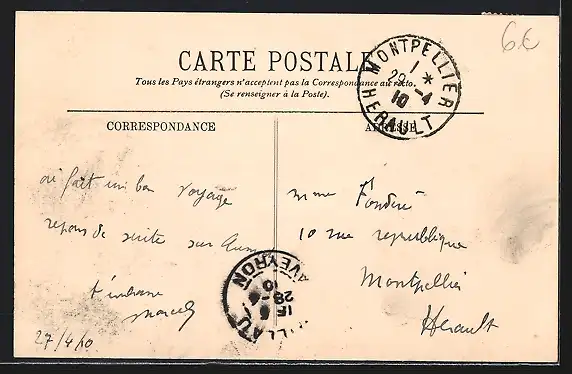 6€
CARTE POSTALE
Tous les Pays étrangers n'acceptent pas la Correspondance au recto.
(Se renseigner à la Poste).
MONTPELLIER
1 *
29 -4
10
HERAULT
CORRESPONDANCE
ADRESSE
ai fait un bon voyage
repons de suite sur
t'embrasse
Marcel
27/4/10
AVEYRON
15
28-4
10
mme Fonderé
10 rue republique
Montpellier
Herault